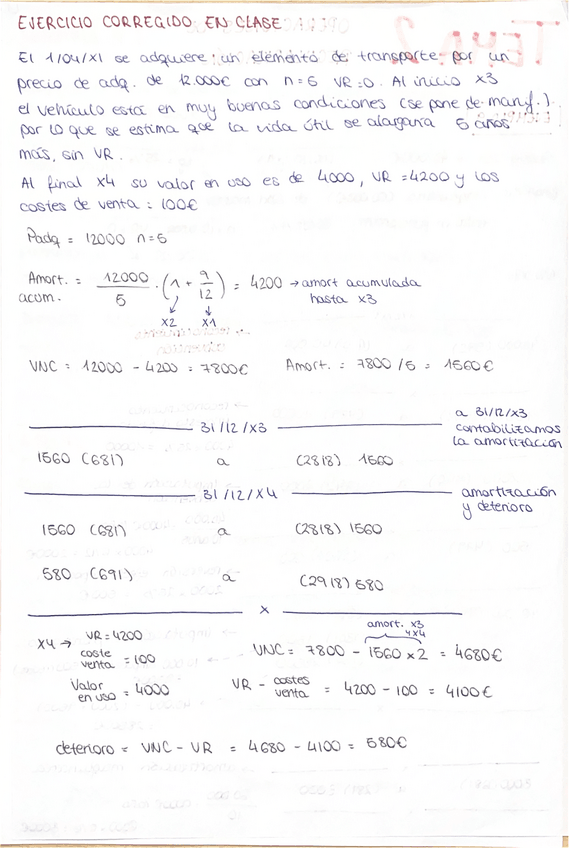 EJERCICIO CORREGIDO EN CLASE
El 1/04/X1 se adquiere un elemento de transporte por un
precio de adq. de 12.000€ con n=5 VR=0. Al inicio X3
el vehículo está en muy buenas condiciones (se pone de manif.)
por lo que se estima que la vida útil se alargará 5 años
más, sin VR.
Al final X4 su valor en uso es de 4000, VR=4200 y los
costes de venta: 100€
Padq = 12000 n=5
Amort. acum. = 12000 / 5 · (1 + 9/12) = 4200 → amort acumulada
hasta X3
X2 X1
VNC = 12000 - 4200 = 7800€ Amort. = 7800/5 = 1560€
31/12/X3 a 31/12/X3
contabilizamos
la amortización
1560 (681) a (2818) 1560
31/12/X4 amortización
y deterioro
1560 (681) a (2818) 1560
580 (691) a (2918) 580
x
X4 → VR = 4200
coste venta = 100
Valor en uso = 4000
amort. X3
y X4
VNC = 7800 - 1560 x 2 = 4680€
VR - costes venta = 4200 - 100 = 4100€
deterioro = VNC - VR = 4680 - 4100 = 580€